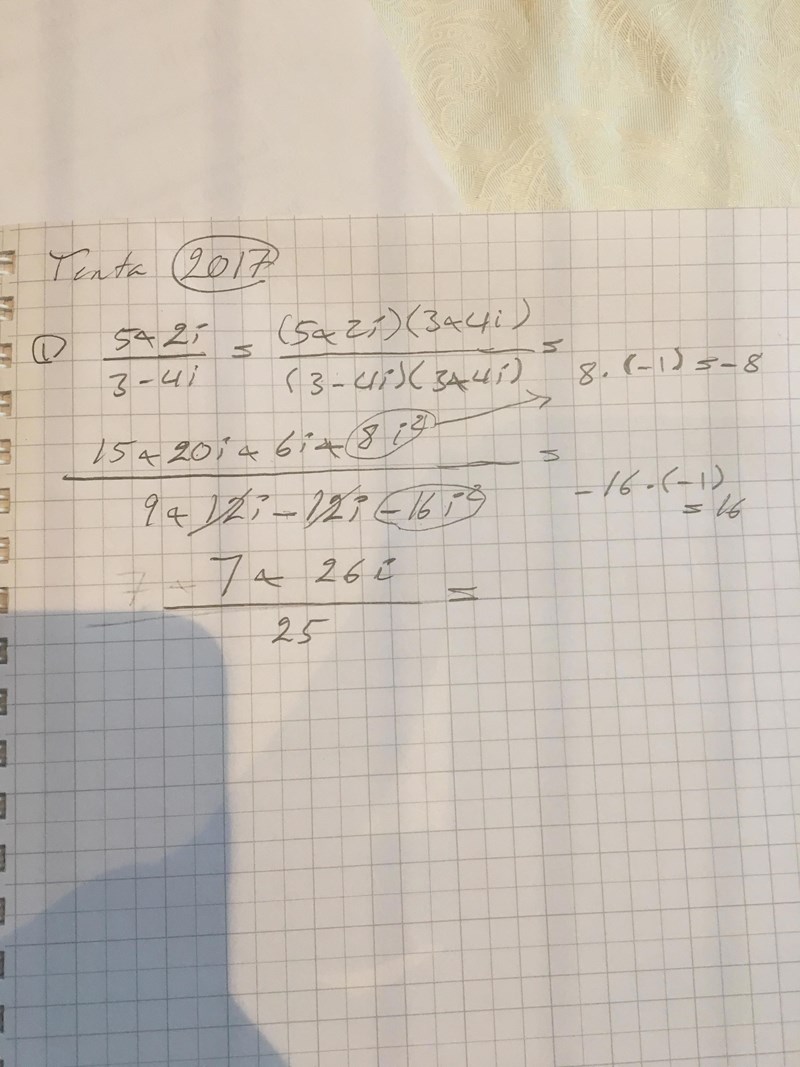 Tenta 2017
① (5+2i)/(3-4i) = (5+2i)(3+4i)/(3-4i)(3+4i) =
8·(-1) = -8
(15+20i+6i+8i²)/(9+12i-12i-16i²) =
-16·(-1)
= 16
(7+26i)/25 =